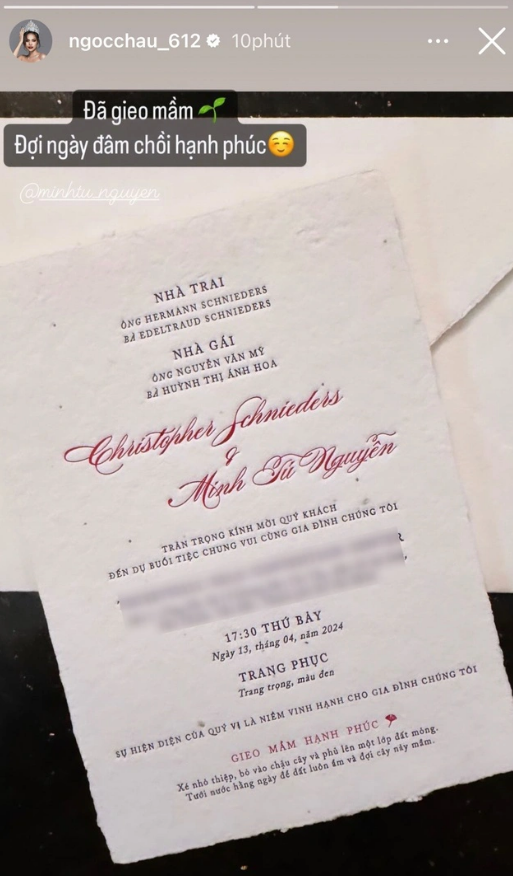 ngocchau_612 10phút
Đã gieo mầm
Đợi ngày đâm chồi hạnh phúc
@minhtu_nguyen
NHÀ TRAI
ÔNG HERMANN SCHNIEDERS
BÀ EDELTRAUD SCHNIEDERS
NHÀ GÁI
ÔNG NGUYỄN VĂN MỸ
BÀ HUỲNH THỊ ÁNH HOA
Christopher Schnieders
&
Minh Tú Nguyễn
TRÂN TRỌNG KÍNH MỜI QUÝ KHÁCH
ĐẾN DỰ BUỔI TIỆC CHUNG VUI CÙNG GIA ĐÌNH CHÚNG TÔI
17:30 THỨ BẢY
Ngày 13, tháng 04, năm 2024
TRANG PHỤC
Trang trọng, màu đen
SỰ HIỆN DIỆN CỦA QUÝ VỊ LÀ NIỀM VINH HẠNH CHO GIA ĐÌNH CHÚNG TÔI
GIEO MẦM HẠNH PHÚC
Xé nhỏ thiệp, bỏ vào chậu cây và phủ lên một lớp đất mỏng.
Tưới nước hằng ngày để đất luôn ẩm và đợi cây nảy mầm.